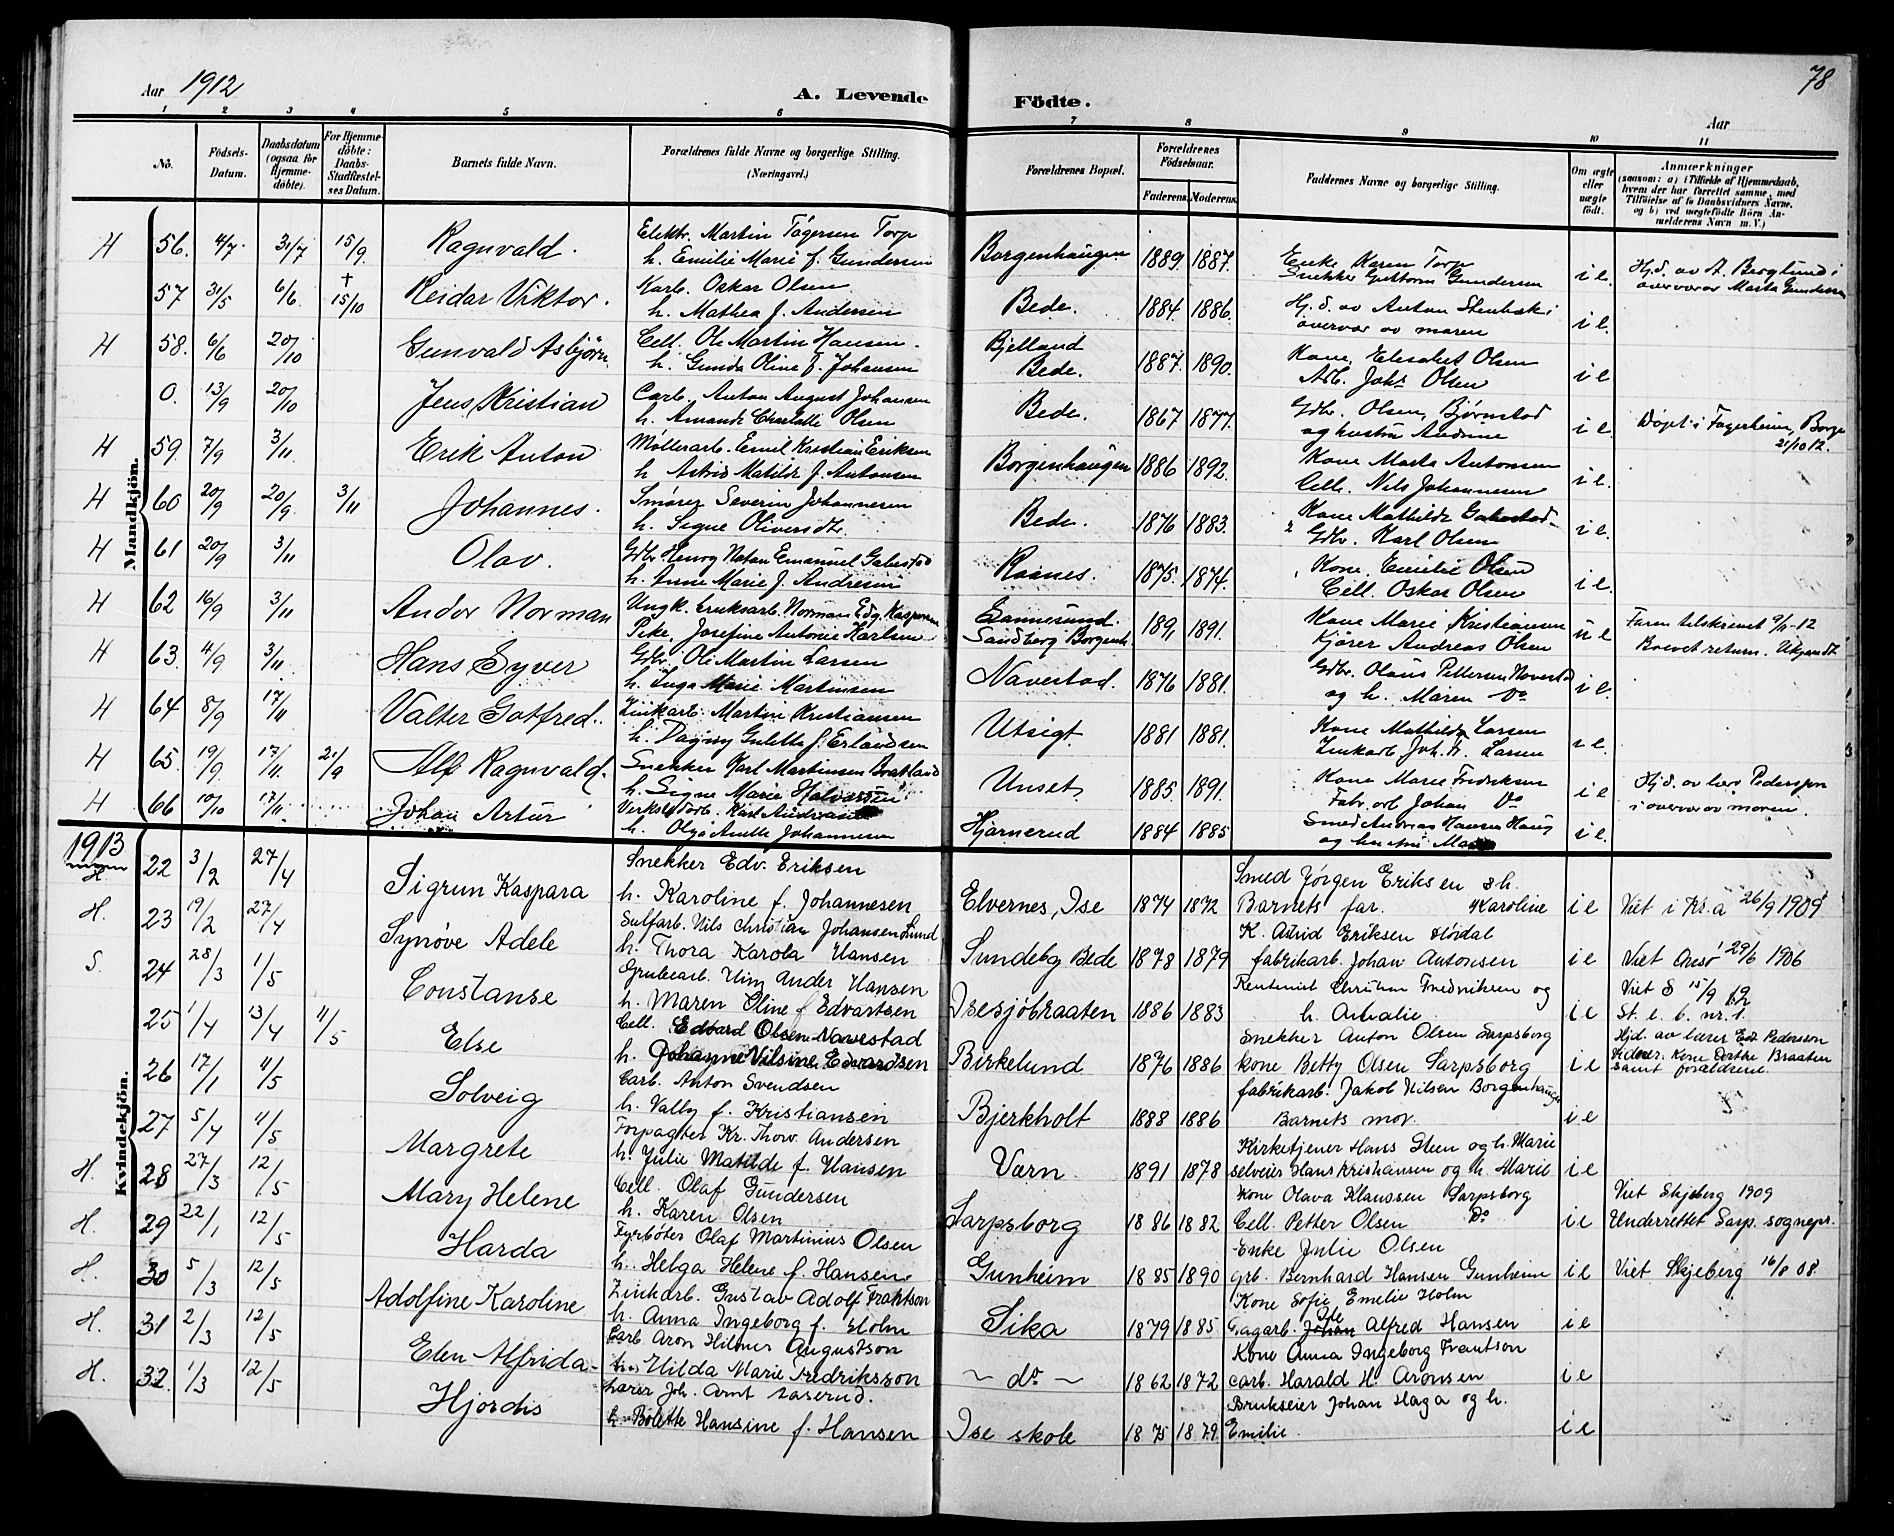 Aar 1912
A. Levende Födte.
78
Aar
1 2 3 4 5 6 7 8 9 10 11
No.
Födsels-Datum.
Daabsdatum (ogsaa for Hjemme-döbte).
For Hjemme-döbte: Daabs-Stadfæstel-ses Datum.
Barnets fulde Navn.
Forældrenes fulde Navne og borgerlige Stilling. (Næringsvei.)
Forældrenes Bopæl.
Forældrenes Födselsaar.
Faderens. Moderens.
Faddernes Navne og borgerlige Stilling.
Om ægte eller uægte födt.
Anmærkninger
(saasom: a) i Tilfælde af Hjemmedaab, hvem der har forrettet samme, med Tilföielse af to Daabsvidners Navne. og b) ved uægtefödte Börn An-melderens Navn m. V.)
Mandkjön.
H 56. 4/7 31/7 15/9 Ragnvald. Elektr. Martin Tögersen Torp
h. Emilie Marie f. Gundersen Borgenhaugen 1889. 1887. Enke Karen Torp
Snekker Guttorm Gundersen i e. Hj.d. av A. Berglund i
overvær av Marta Gundersen
57 31/5 6/6 † 15/10 Reidar Viktor. Karb. Oskar Olsen
h. Mathea f. Andersen Bede. 1884. 1886. Hj. d. av Anton Stenbæk i
overvær av moren i e.
H 58. 6/6 20/10 Gunvald Asbjörn. Cell. Ole Martin Hansen.
h. Gunda Oline f. Johansen Bjelland
Bede. 1887. 1890. Kone Elisabet Olsen
Arb. Johs Olsen i e
0. 13/9 20/10 Jens Kristian Carb. Anton August Johansen
h. Amanda Charlotte Olsen Bede. 1867 1877. Gdbr. Olsen, Bjørnstad
og hustru Andrine i e. Døpt i Fagerheim, Borge
21/10 12.
H 59. 7/9 3/11 Erik Anton Møllerarb. Emil Kristian Eriksen
h. Astrid Matilde f. Antonsen Borgenhaugen 1886 1892. Kone Marta Antonsen
Cell. Nils Johannesen i e.
H 60 20/9 20/9 3/11 Johannes. Smörer Severin Johannesen
h. Signe Oliversdt. Bede. 1876 1883. Kone Mathilde Gabestad
Gdbr. Karl Olsen i e.
H 61 20/9 3/11 Olav. Gdbr. Henry Natan Emanuel Gabestad
h. Anne Marie f. Andresen Raanes. 1875. 1874. Kone, Emilie Olsen
Cell. Oskar Olsen i e.
H 62 16/9 3/11 Andor Norman Ungk. bruksarb. Norman Edg. Kaspersen
Pike, Josefine Antonie Karlsen Sannesund.
Sandberg Borgenh. 1891 1891. Kone Marie Kristiansen
Kjører Andreas Olsen u e Faren tilskrevet 9/11-12
Brevet return. Ukjendt
H 63. 4/9 3/11 Hans Syver Gdbr. Ole Martin Larsen
h. Inga Marie Martinsen Navestad. 1876 1881. Gdbr. Olaus Pettersen Navestad
og h. Maren Do i e.
H 64 8/9 17/11 Valter Gotfred. Zinkarb. Martin Kristiansen
h. Dagny Gulette f. Erlandsen Utsigt. 1881 1881. Kone Mathilda Larsen
Zinkarb. Joh. K. Larsen i e.
H 65. 19/9. 17/11. 21/9 Alf Ragnvald. Snekker Karl Martinsen Bratland
h. Signe Marie Halvorsen Unset. 1885. 1891. Kone Marie Fredriksen
Fabr. arb. Johan Do i e Hj.d. av lærer Pedersen
i overvær av moren.
H 66 10/10 17/11 Johan Artur Verkstedarb. Karl
h. Olga Anette Johannesen Hjørnerud 1884 1885 Smed Andreas Hansen Haug
og hustru i e.
1913
Kvindekjön.
H 22 3/2 27/4 Sigrun Kaspara Snekker Edv. Eriksen
h. Karoline f. Johannesen Elvernes, Ise 1874 1872 Smed Jörgen Eriksen s. h.
Barnets far. Karoline i e Viet i Kr.a 26/9 1909
H. 23 19/2 27/4 Synöve Adele Sulfarb. Nils Christian Johansen Lund
h. Thora Karola Hansen Sundeby Bede 1878 1879 K. Astrid Eriksen Hördal
fabrikarb. Johan Antonsen i e Viet Onsö 29/6 1906
S. 24 28/3 1/5 Constanse Grubearb. Wim Ander Hansen
h. Maren Eline f. Edvartsen Isesjöbraaten 1886 1883 Rentenist Christian Fredriksen og
h. Amalie. i e Viet S 15/9 12
St. e. b. nr. 1.
25 1/4 13/4 11/5 Else Cell. Edvard Olsen Navestad
h. Johanne Vilsine Edvardsen Birkelund 1876 1886 Snekker Anton Olsen Sarpsborg
kone Betty Olsen Sarpsborg i e Hjd. av lærer Edv. Pedersen
Vidner. Kone Dorthe Braaten
samt forældrene.
26 17/1 11/5 Solveig Carb. Anton Svendsen
h. Valby f. Kristiansen Bjerkholt 1888 1886 fabrikarb. Jakob Nilsen Borgenhaugen
Barnets mor. i e
27 5/4 11/5 Margrete Forpagter Kr. Thorv. Andersen
h. Julie Matilde f. Hansen Værn. 1891 1878 Kirketjener Hans Steen og h. Marie
selveier Hans Kristiansen og h. Marie i e
H. 28 27/3 12/5 Mary Helene Cell. Olaf Gundersen
h. Karen Olsen Sarpsborg 1886 1882 Kone Olava Klaussen Sarpsborg
Cell. Petter Olsen Do i e Viet Skjeberg 1909
Underrettet Sarp. sognepr.
H. 29 22/1 12/5 Harda Fyrböter Olaf Martinius Olsen
h. Helga Helene f. Hansen Gunheim 1885 1890 Enke Julie Olsen
grb. Bernhard Hansen Gunheim i e Viet Skjeberg 16/8 08.
H. 30 5/3 12/5 Adolfine Karoline Zinkarb. Gustav Adolf Frantson
h. Anna Ingeborg f. Holm Sika 1879 1885 Kone Sofie Emelie Holm
Dagarb. Johan Ole Alfred Hansen i e
H. 31 2/3 12/5 Elen Alfrida Carb. Aron Hilmer Augustson
h. Hilda Marie Fredriksson ~ do ~ 1862 1872 Kone Anna Ingeborg Frantson
carb. Harald H. Aronsen i e
H. 32. 1/3 12/5 Hjordis Lærer Joh. Arnt Laserud.
h. Bolette Hansine f. Hansen Ise skole 1875 1879. Brukseier Johan Haga og h.
Emilie. i e